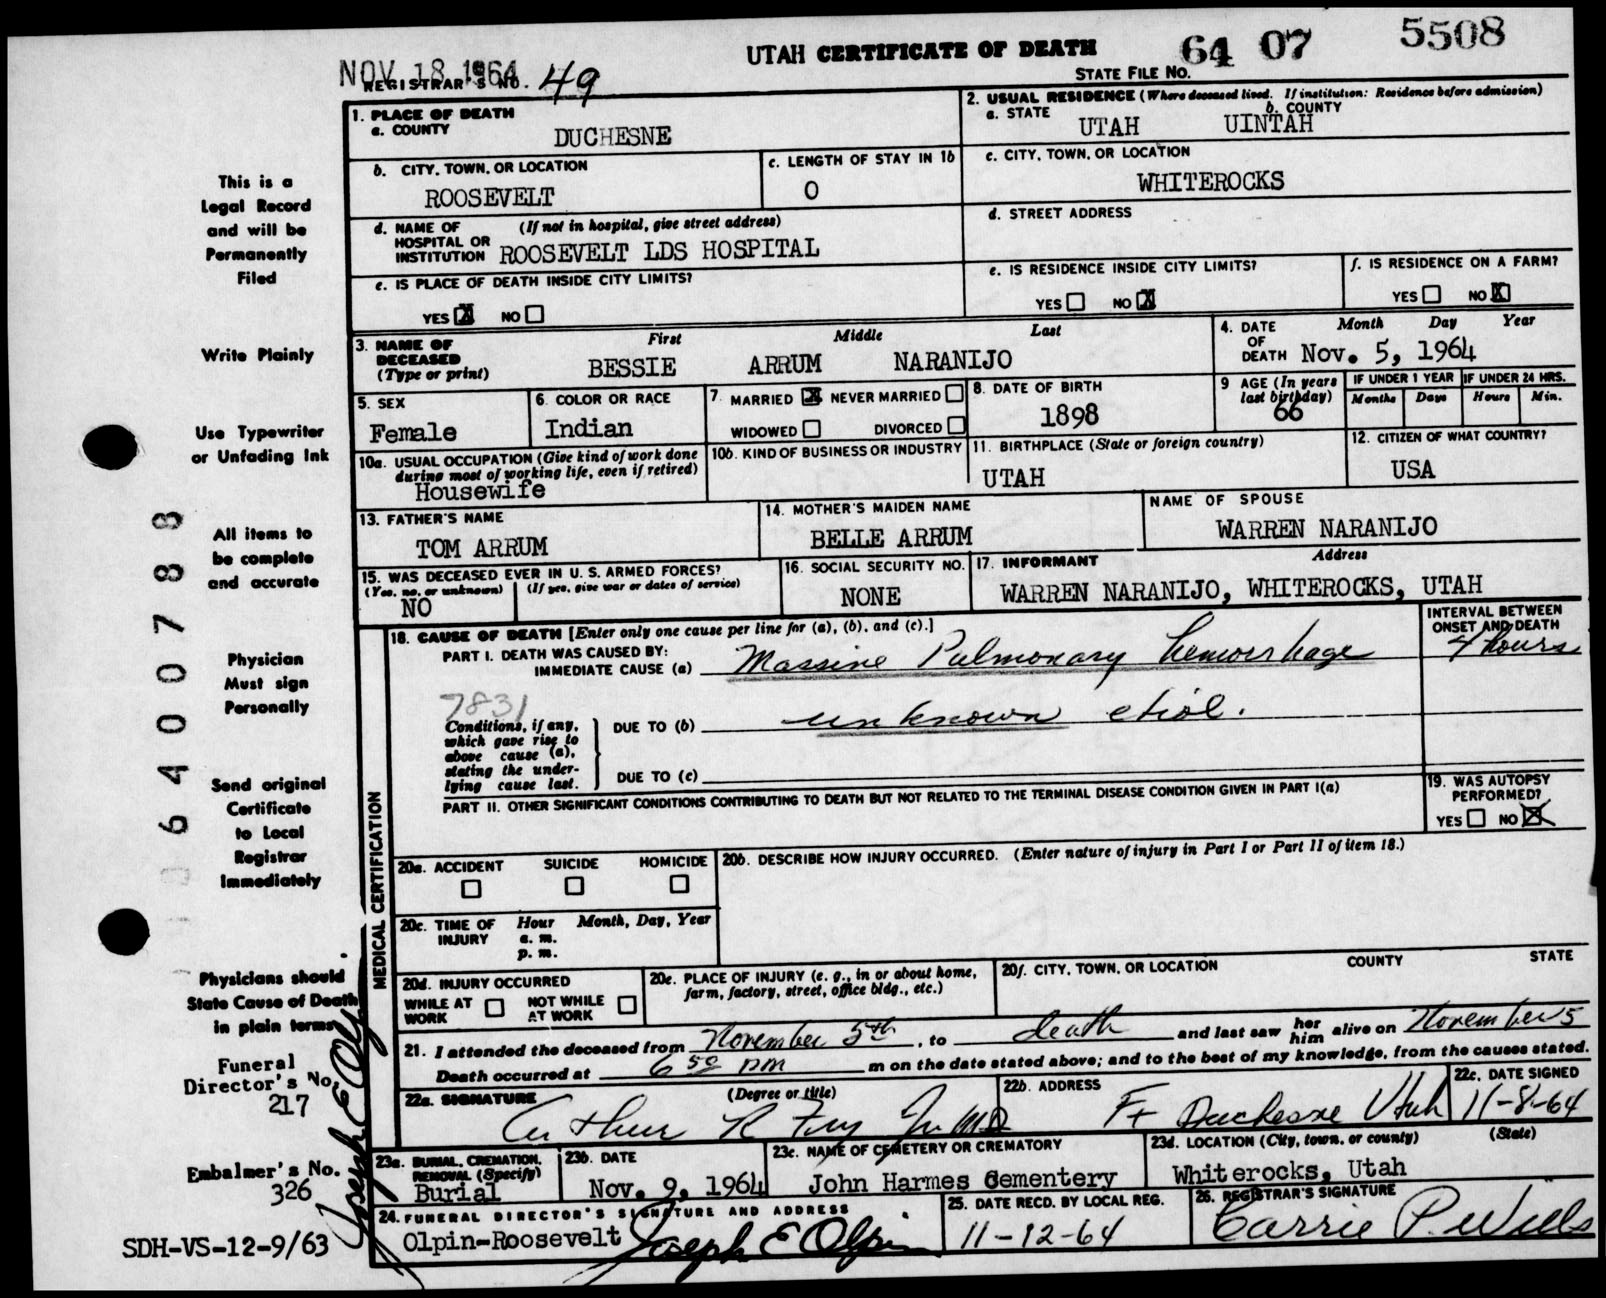 UTAH CERTIFICATE OF DEATH 64 07 5508
NOV 18 1964
REGISTRAR'S NO. 49 STATE FILE NO.
1. PLACE OF DEATH
a. COUNTY DUCHESNE
2. USUAL RESIDENCE (Where deceased lived. If institution: Residence before admission)
a. STATE UTAH b. COUNTY UINTAH
b. CITY, TOWN, OR LOCATION ROOSEVELT
c. LENGTH OF STAY IN 1b 0
c. CITY, TOWN, OR LOCATION WHITEROCKS
d. NAME OF HOSPITAL OR INSTITUTION (If not in hospital, give street address) ROOSEVELT LDS HOSPITAL
d. STREET ADDRESS
e. IS PLACE OF DEATH INSIDE CITY LIMITS?
YES X NO
e. IS RESIDENCE INSIDE CITY LIMITS?
YES NO X
f. IS RESIDENCE ON A FARM?
YES NO X
3. NAME OF DECEASED (Type or print) First Middle Last
BESSIE ARRUM NARANIJO
4. DATE OF DEATH Month Day Year
Nov. 5, 1964
5. SEX Female
6. COLOR OR RACE Indian
7. MARRIED X NEVER MARRIED
WIDOWED DIVORCED
8. DATE OF BIRTH 1898
9 AGE (In years last birthday) 66
IF UNDER 1 YEAR Months Days
IF UNDER 24 HRS. Hours Min.
10a. USUAL OCCUPATION (Give kind of work done during most of working life, even if retired)
Housewife
10b. KIND OF BUSINESS OR INDUSTRY
11. BIRTHPLACE (State or foreign country)
UTAH
12. CITIZEN OF WHAT COUNTRY?
USA
13. FATHER'S NAME
TOM ARRUM
14. MOTHER'S MAIDEN NAME
BELLE ARRUM
NAME OF SPOUSE
WARREN NARANIJO
15. WAS DECEASED EVER IN U. S. ARMED FORCES?
(Yes, no, or unknown) (If yes, give war or dates of service)
NO
16. SOCIAL SECURITY NO.
NONE
17. INFORMANT Address
WARREN NARANIJO, WHITEROCKS, UTAH
MEDICAL CERTIFICATION
18. CAUSE OF DEATH [Enter only one cause per line for (a), (b), and (c).]
INTERVAL BETWEEN ONSET AND DEATH
PART I. DEATH WAS CAUSED BY:
IMMEDIATE CAUSE (a) Massive Pulmonary hemorrhage 4 hours
7831
Conditions, if any, which gave rise to above cause (a), stating the underlying cause last.
DUE TO (b) unknown etiol.
DUE TO (c)
PART II. OTHER SIGNIFICANT CONDITIONS CONTRIBUTING TO DEATH BUT NOT RELATED TO THE TERMINAL DISEASE CONDITION GIVEN IN PART I(a)
19. WAS AUTOPSY PERFORMED?
YES NO X
20a. ACCIDENT SUICIDE HOMICIDE
20b. DESCRIBE HOW INJURY OCCURRED. (Enter nature of injury in Part I or Part II of item 18.)
20c. TIME OF INJURY Hour Month, Day, Year
a. m.
p. m.
20d. INJURY OCCURRED
WHILE AT WORK NOT WHILE AT WORK
20e. PLACE OF INJURY (e. g., in or about home, farm, factory, street, office bldg., etc.)
20f. CITY, TOWN, OR LOCATION COUNTY STATE
21. I attended the deceased from November 5th, to death and last saw her him alive on November 5
Death occurred at 6 50 pm m on the date stated above; and to the best of my knowledge, from the causes stated.
22a. SIGNATURE (Degree or title)
Arthur R Fry Jr MD
22b. ADDRESS
Ft Duchesne Utah
22c. DATE SIGNED
11-8-64
23a. BURIAL, CREMATION, REMOVAL (Specify)
Burial
23b. DATE
Nov. 9, 1964
23c. NAME OF CEMETERY OR CREMATORY
John Harmes Cementery
23d. LOCATION (City, town, or county) (State)
Whiterocks, Utah
24. FUNERAL DIRECTOR'S SIGNATURE AND ADDRESS
Olpin-Roosevelt Joseph E Olpin
25. DATE RECD. BY LOCAL REG.
11-12-64
26. REGISTRAR'S SIGNATURE
Carrie P. Wills
This is a
Legal Record
and will be
Permanently
Filed
Write Plainly
Use Typewriter
or Unfading Ink
All items to
be complete
and accurate
Physician
Must sign
Personally
Send original
Certificate
to Local
Registrar
Immediately
Physicians should
State Cause of Death
in plain terms
Funeral
Director's No.
217
Embalmer's No.
326
Joseph E Olpin
SDH-VS-12-9/63
06400788